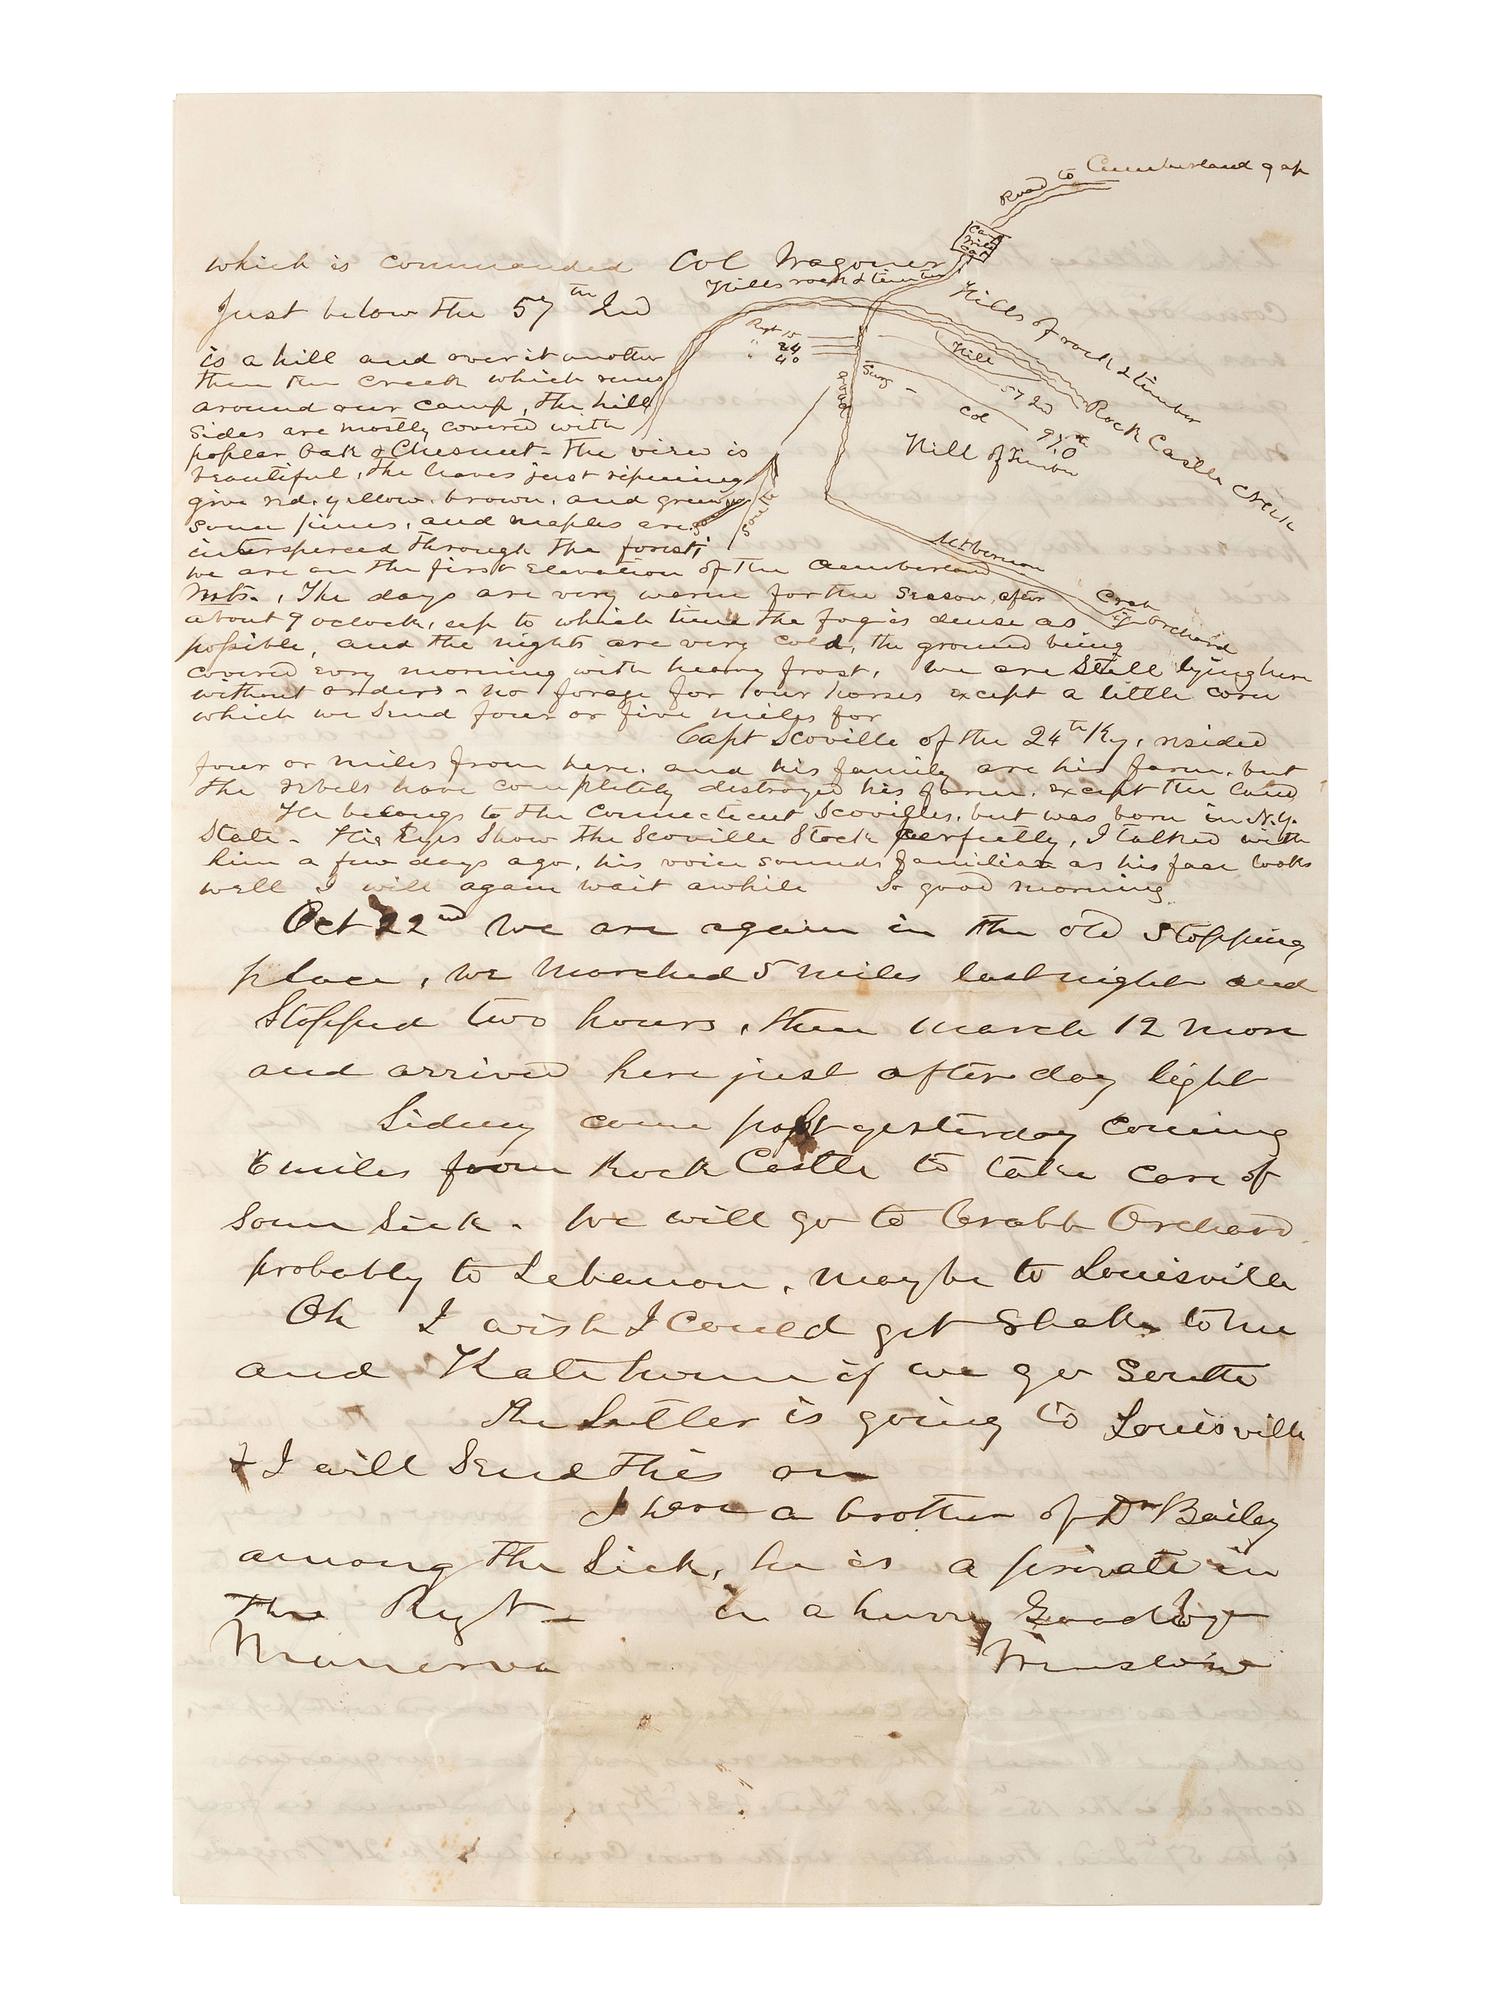 Road to Cumberland gap
which is commanded Col Wagoner
Hills rock & timber
Hills of rock & timber
Just below the 57th Ind
is a hill and over it another
then the creek which runs
around our camp, the hill
sides are mostly covered with
poplar Oak & Chesnut - the view is
beautiful, the leaves just ripening
give red, yellow, brown, and green
some pines, and maples are
interspersed through the forest,
we are on the first elevation of the Cumberland
Mts. , The days are very warm for the season, after
about 9 oclock, up to which time the fog is dense as
possible, and the nights are very cold, the ground being
covered evry morning with heavy frost, we are still lying here
without orders - no forage for our horses except a little corn
which we send four or five miles for
Regt 15
" 24
" 40
Hill
Surg
57 Ind
Col
97th O
Road
Hill of Timber
Rock Castle Creek
South
Mt Vernon
Crab Orchard
Capt Scoville of the 24th Ky, resided
four or miles from here, and his family are his farm, but
the rebels have completely destroyed his farm, except the land
He belongs to the Connecticut Scovilles, but was born in N.Y.
State - His Eyes Show the Scoville Stock perfectly, I talked with
him a few days ago, his voice sounds familiar as his face looks
well I will again wait awhile So good morning
Oct 22nd We are again in the old Stopping
place, we Marched 5 miles last night and
Stopped two hours, then march 12 more
and arrived here just after day light
Sidney came past yesterday coming
6 miles from Rock Castle to take care of
some Sick - We will go to Crabb Orchard
probably to Lebanon, maybe to Louisville
Oh I wish I Could get to me
and Kate home if we go South
The Sutler is going to Louisville
& I will Send this on
I have a brother of Dr Bailey
among the Sick, he is a private in
the Regt - in a hurry Goodbye
Minerva Winslow